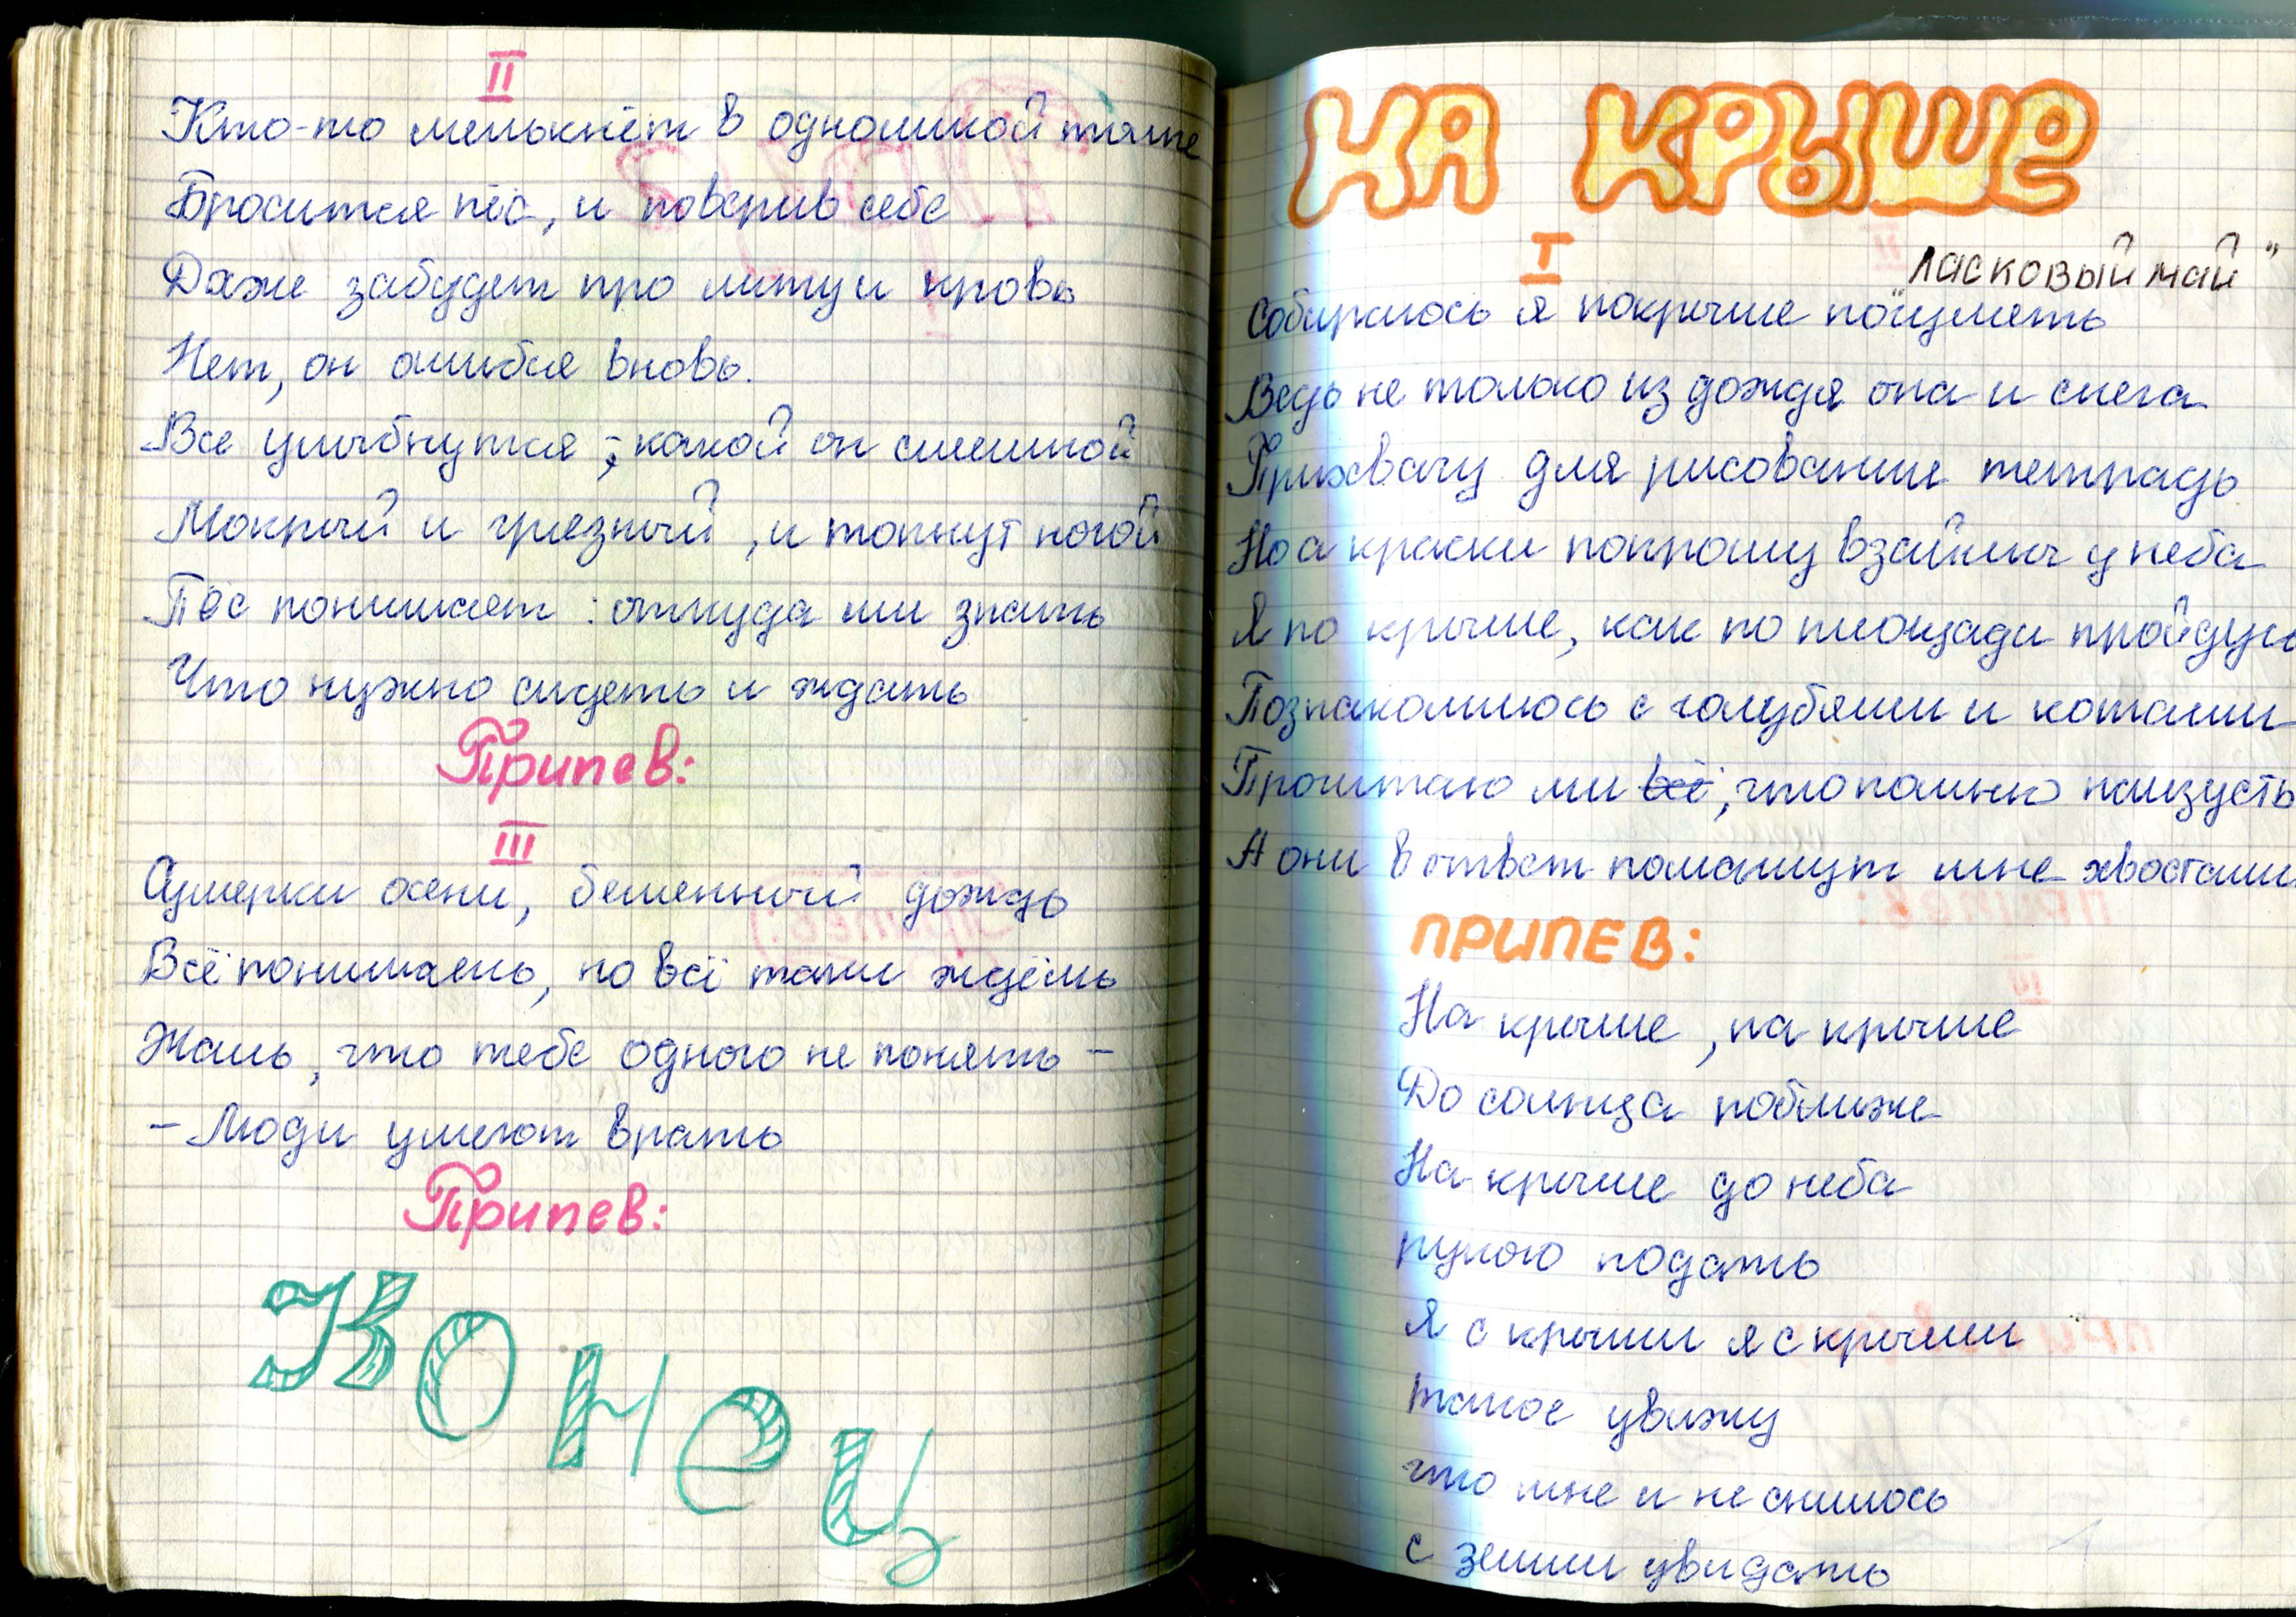 II
Кто-то мелькнёт в одноликой толпе
Бросится пёс, и поверив себе
Даже забудет про литуи кровь
Нет, он ошибся вновь.
Все улыбнутся ; какой он смешной
Мокрый и грязный, и топнут ногой
Пёс понимает : откуда им знать
Что нужно сидеть и ждать
Припев:
III
Сумерки осени, бешенный дождь
Всё понимаешь, но всё таки ждёшь
Жаль, что тебе одного не понять –
– Люди умеют врать
Припев:
Конец
НА КРЫШЕ
I
"Ласковый май"
Собираюсь я по крыше пошуметь
Ведь не только из дождя она и снега
Прихвачу для рисования тетрадь
Но а краски попрошу взаймы у неба
Я по крыше, как по площади пройдусь
Познакомлюсь с голубями и котами
Прочитаю им всё, что помню наизусть
А они в ответ помашут мне хвостами
ПРИПЕВ:
На крыше, на крыше
До солнца поближе
На крыше до неба
рукою подать
Я с крыши я с крыши
такое увижу
что мне и не снилось
с земли увидать